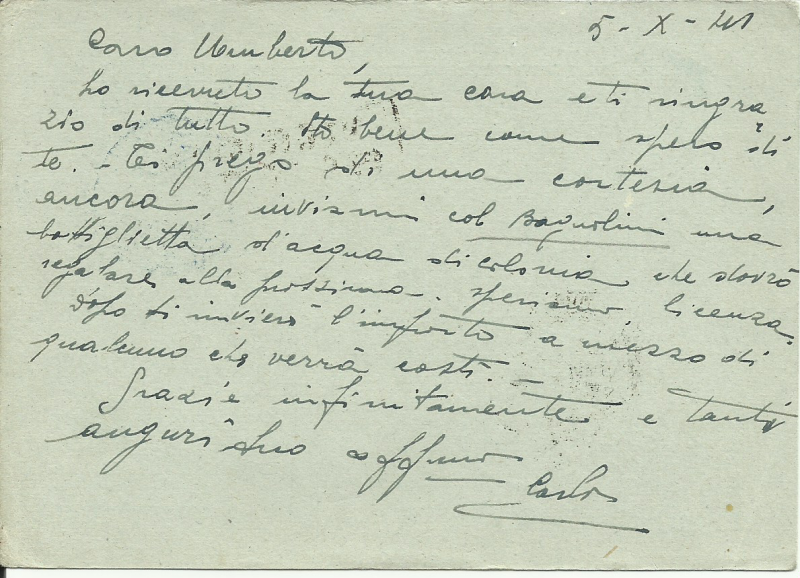 5 - X - 41
Caro Umberto,
ho ricevuto la tua cara e ti ringra
zio di tutto. Sto bene come spero di
te. - Ti prego di una cortesia,
ancora, inviami col Bagnolini una
bottiglietta d'acqua di colonia che dovrò
regalare alla prossima, speriamo, licenza.
Dopo ti invierò l'importo a mezzo di
qualcuno che verrà costì. -
Grazie infinitamente e tanti
auguri tuo aff/mo
Carlo